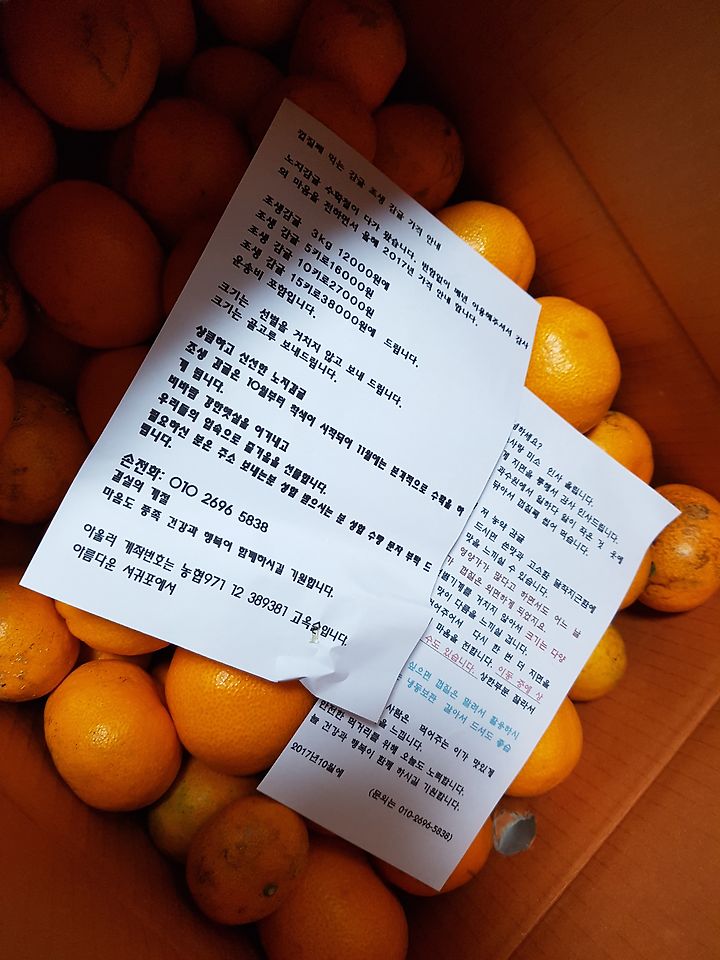 껍질째 먹는 감귤 조생 감귤 가격 안내
노지감귤 수확철이 다가 왔습니다. 변함없이 매년 이용해주셔서 감사
의 마음을 전하면서 올해 2017년 가격 안내 합니다.
조생감귤 3kg 12000원에
조생 감귤 5키로16000원
조생 감귤 10키로27000원
조생 감귤 15키로38000원에 드립니다.
운송비 포함입니다.
크기는 선별을 거치지 않고 보내 드립니다.
크기는 골고루 보내드립니다.
상큼하고 신선한 노지감귤
조생 감귤은 10월부터 착색이 시작되어 11월에는 본격적으로 수확을 하
게 됩니다.
비바람 강한햇살을 이겨내고
우리들의 입속으로 즐거움을 선물합니다.
필요하신 분은 주소 보내는분 성함 받으시는 분 성함 수량 문자 부탁 드
립니다.
손전화: 010 2696 5838
결실의 계절
마음도 풍족 건강과 행복이 함께하시길 기원합니다.
아울러 계좌번호는 농협971 12 389381 고옥 입니다.
아름다운 서귀포에서
하세요?
사랑 미소 인사 올립니다.
지면을 통해서 감사 인사드립니다.
과수원에서 일하다 일이 잦은 것 옷에
닦아서 껍질째 씹어 먹습니다.
저 농약 감귤
드시면 쓴맛과 고소함 달작지근함에
맛을 느끼실 수 있습니다.
영양가가 많다고 하면서도 어느 날
껍질은 외면하게 되었지요.
기계를 거치지 않아서 크기는 다양
맛이 다름을 느끼실 겁니다.
어주어서 다시 한 번 더 지면을
마음을 전합니다. 이동 중에 상
수도 있습니다. 상한부분 잘라서
싶으면 껍질은 말려서 활용하시
냉동보관 갈아서 드셔도 좋습
사람은 먹어주는 이가 맛있게
을 느낍니다.
안전한 먹거리를 위해 오늘도 노력합니다.
늘 건강과 행복이 함께 하시길 기원합니다.
2017년10월에
(문의는 010-2696-5838)